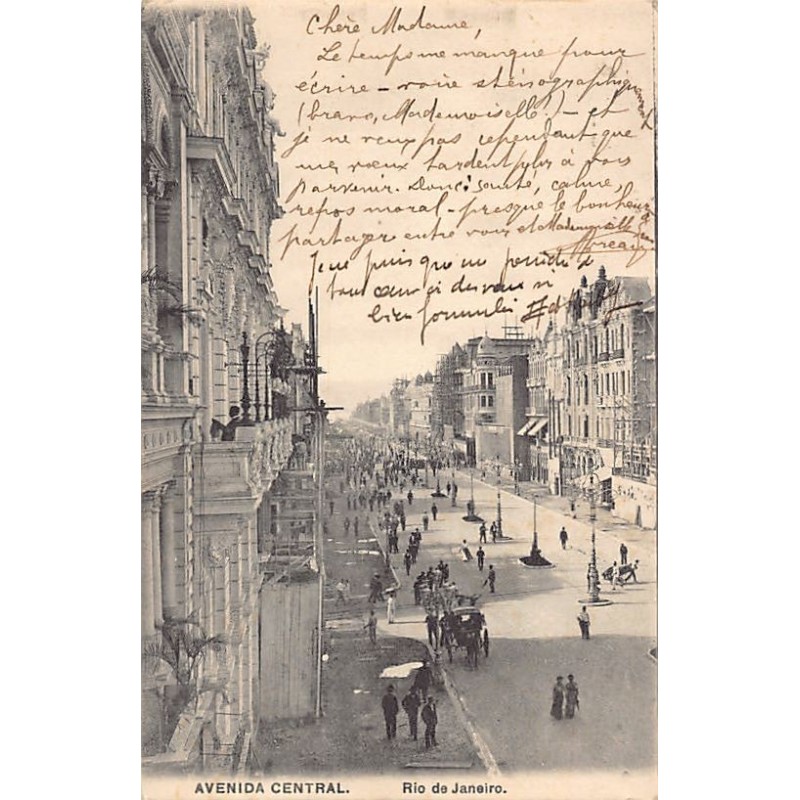 Chère Madame,
Le temps me manque pour
écrire – voire sténographiquement
(bravo, Mademoiselle!) – et
je ne veux pas cependant que
mes vœux tardent plus à vous
parvenir. Donc: santé, calme,
repos moral – presque le bonheur à
partager entre vous et Mademoiselle
puis qu'on
tout
bien formulés
AVENIDA CENTRAL. Rio de Janeiro.